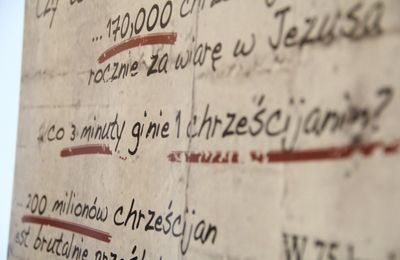 Czy
...170,000
rocznie za wiarę w Jezusa
co 3 minuty ginie 1 chrześcijanin?
...200 milionów chrześcijan
jest brutalnie
W 75